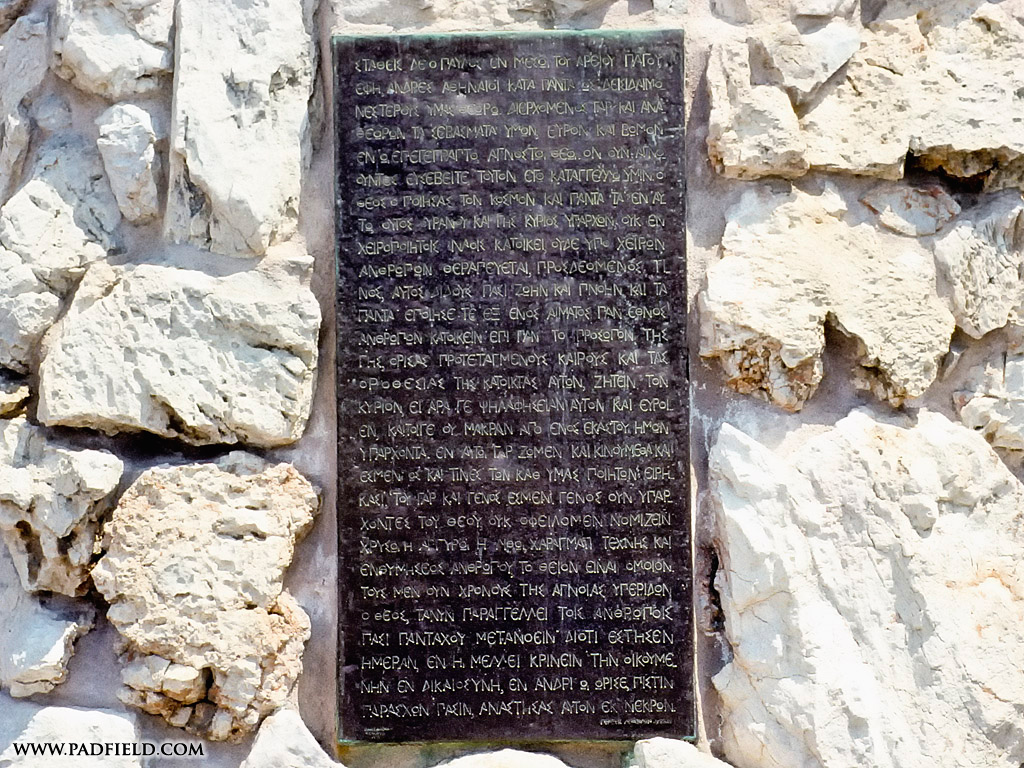 ΣΤΑΘΕΙΣ ΔΕ Ο ΠΑΥΛΟΣ ΕΝ ΜΕΣΩ ΤΟΥ ΑΡΕΙΟΥ ΠΑΓΟΥ
ΕΦΗ, ΑΝΔΡΕΣ ΑΘΗΝΑΙΟΙ ΚΑΤΑ ΠΑΝΤΑ ΩΣ ΔΕΙΣΙΔΑΙΜΟ
ΝΕΣΤΕΡΟΥΣ ΥΜΑΣ ΘΕΩΡΩ. ΔΙΕΡΧΟΜΕΝΟΣ ΓΑΡ ΚΑΙ ΑΝΑ
ΘΕΩΡΩΝ ΤΑ ΣΕΒΑΣΜΑΤΑ ΥΜΩΝ, ΕΥΡΟΝ ΚΑΙ ΒΩΜΟΝ
ΕΝ Ω ΕΠΕΓΕΓΡΑΠΤΟ, ΑΓΝΩΣΤΩ, ΘΕΩ. ΟΝ ΟΥΝ ΑΓΝΟ
ΟΥΝΤΕΣ ΕΥΣΕΒΕΙΤΕ ΤΟΥΤΟΝ ΕΓΩ ΚΑΤΑΓΓΕΛΛΩ ΥΜΙΝ. Ο
ΘΕΟΣ Ο ΠΟΙΗΣΑΣ ΤΟΝ ΚΟΣΜΟΝ ΚΑΙ ΠΑΝΤΑ ΤΑ ΕΝ ΑΥ
ΤΩ, ΟΥΤΟΣ ΟΥΡΑΝΟΥ ΚΑΙ ΓΗΣ ΚΥΡΙΟΣ ΥΠΑΡΧΩΝ, ΟΥΚ ΕΝ
ΧΕΙΡΟΠΟΙΗΤΟΙΣ ΝΑΟΙΣ ΚΑΤΟΙΚΕΙ ΟΥΔΕ ΥΠΟ ΧΕΙΡΩΝ
ΑΝΘΡΩΠΩΝ ΘΕΡΑΠΕΥΕΤΑΙ, ΠΡΟΣΔΕΟΜΕΝΟΣ, ΤΙ
ΝΟΣ, ΑΥΤΟΣ ΔΙΔΟΥΣ ΠΑΣΙ ΖΩΗΝ ΚΑΙ ΠΝΟΗΝ ΚΑΙ ΤΑ
ΠΑΝΤΑ ΕΠΟΙΗΣΕ ΤΕ ΕΞ ΕΝΟΣ ΑΙΜΑΤΟΣ ΠΑΝ ΕΘΝΟΣ
ΑΝΘΡΩΠΩΝ ΚΑΤΟΙΚΕΙΝ ΕΠΙ ΠΑΝ ΤΟ ΠΡΟΣΩΠΟΝ ΤΗΣ
ΓΗΣ, ΟΡΙΣΑΣ ΠΡΟΤΕΤΑΓΜΕΝΟΥΣ ΚΑΙΡΟΥΣ ΚΑΙ ΤΑΣ
ΟΡΟΘΕΣΙΑΣ ΤΗΣ ΚΑΤΟΙΚΙΑΣ ΑΥΤΩΝ, ΖΗΤΕΙΝ ΤΟΝ
ΚΥΡΙΟΝ, ΕΙ ΑΡΑ ΓΕ ΨΗΛΑΦΗΣΕΙΑΝ ΑΥΤΟΝ ΚΑΙ ΕΥΡΟΙ
ΕΝ, ΚΑΙΤΟΙΓΕ ΟΥ ΜΑΚΡΑΝ ΑΠΟ ΕΝΟΣ ΕΚΑΣΤΟΥ ΗΜΩΝ
ΥΠΑΡΧΟΝΤΑ. ΕΝ ΑΥΤΩ, ΓΑΡ ΖΩΜΕΝ ΚΑΙ ΚΙΝΟΥΜΕΘΑ ΚΑΙ
ΕΣΜΕΝ, ΩΣ ΚΑΙ ΤΙΝΕΣ ΤΩΝ ΚΑΘ ΥΜΑΣ ΠΟΙΗΤΩΝ ΕΙΡΗ
ΚΑΣΙ, ΤΟΥ ΓΑΡ ΚΑΙ ΓΕΝΟΣ ΕΣΜΕΝ. ΓΕΝΟΣ ΟΥΝ ΥΠΑΡ
ΧΟΝΤΕΣ ΤΟΥ ΘΕΟΥ, ΟΥΚ ΟΦΕΙΛΟΜΕΝ ΝΟΜΙΖΕΙΝ
ΧΡΥΣΩ, Η ΑΡΓΥΡΩ, Η ΛΙΘΩ, ΧΑΡΑΓΜΑΤΙ ΤΕΧΝΗΣ ΚΑΙ
ΕΝΘΥΜΗΣΕΩΣ ΑΝΘΡΩΠΟΥ ΤΟ ΘΕΙΟΝ ΕΙΝΑΙ ΟΜΟΙΟΝ.
ΤΟΥΣ ΜΕΝ ΟΥΝ ΧΡΟΝΟΥΣ ΤΗΣ ΑΓΝΟΙΑΣ ΥΠΕΡΙΔΩΝ
Ο ΘΕΟΣ, ΤΑΝΥΝ ΠΑΡΑΓΓΕΛΛΕΙ ΤΟΙΣ ΑΝΘΡΩΠΟΙΣ
ΠΑΣΙ ΠΑΝΤΑΧΟΥ ΜΕΤΑΝΟΕΙΝ ΔΙΟΤΙ ΕΣΤΗΣΕΝ
ΗΜΕΡΑΝ, ΕΝ Η, ΜΕΛΛΕΙ ΚΡΙΝΕΙΝ ΤΗΝ ΟΙΚΟΥΜΕ
ΝΗΝ ΕΝ ΔΙΚΑΙΟΣΥΝΗ, ΕΝ ΑΝΔΡΙ Ω, ΩΡΙΣΕ, ΠΙΣΤΙΝ
ΠΑΡΑΣΧΩΝ ΠΑΣΙΝ, ΑΝΑΣΤΗΣΑΣ ΑΥΤΟΝ ΕΚ ΝΕΚΡΩΝ.
WWW.PADFIELD.COM